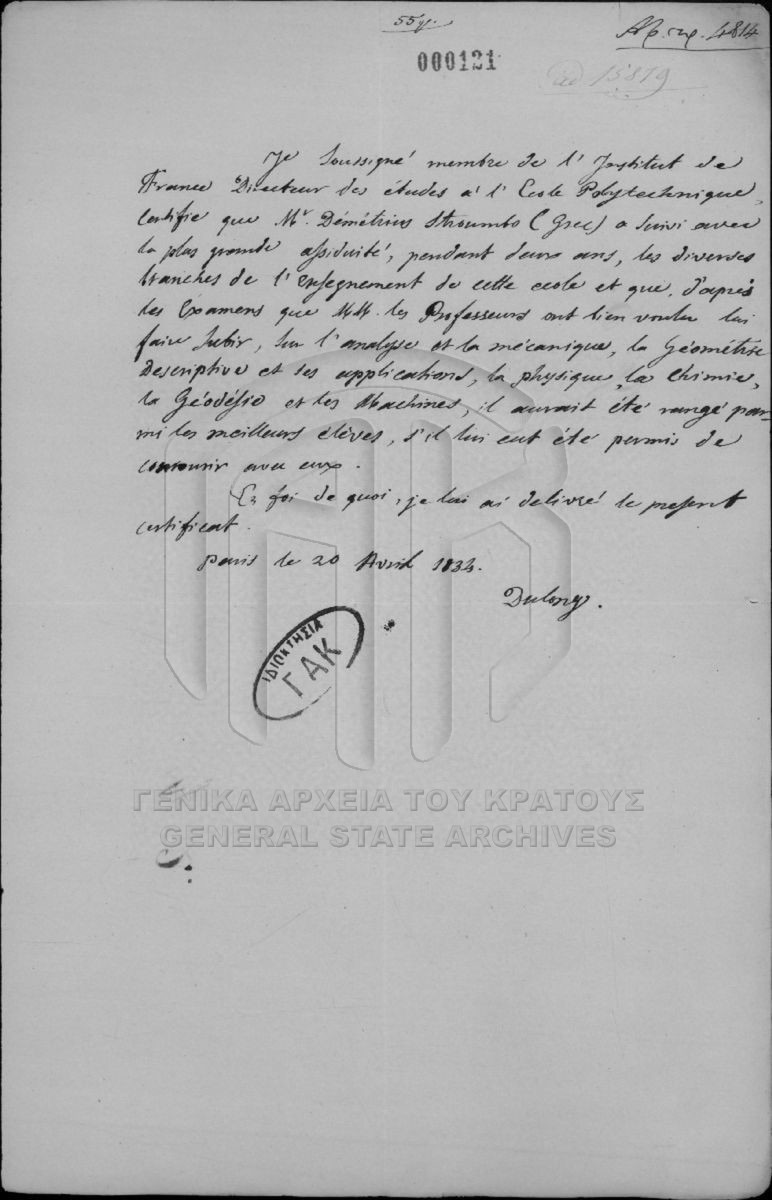 55γ.
Αρ. πρ. 4814
000121
ad 15819
Je soussigné membre de l'Institut de
France Directeur des études à l'Ecole Polytechnique,
certifie que Mr. Démétrius Stroumbo (Grec) a suivi avec
la plus grande assiduité, pendant deux ans, les diverses
branches de l'enseignement de cette ecole et que, d'après
les Examens que MM. les Professeurs ont bien voulu lui
faire subir, sur l'analyse et la mécanique, la Géométrie
Descriptive et ses applications, la physique, la Chimie,
la Géodésie et les Machines, il aurait été rangé par-
mi les meilleurs élèves, s'il lui eut été permis de
concourir avec eux.
En foi de quoi, je lui ai delivré le present
certificat.
Paris le 20 Avril 1834.
Dulong.
ΙΔΙΟΚΤΗΣΙΑ
ΓΑΚ
ΓΕΝΙΚΑ ΑΡΧΕΙΑ ΤΟΥ ΚΡΑΤΟΥΣ
GENERAL STATE ARCHIVES